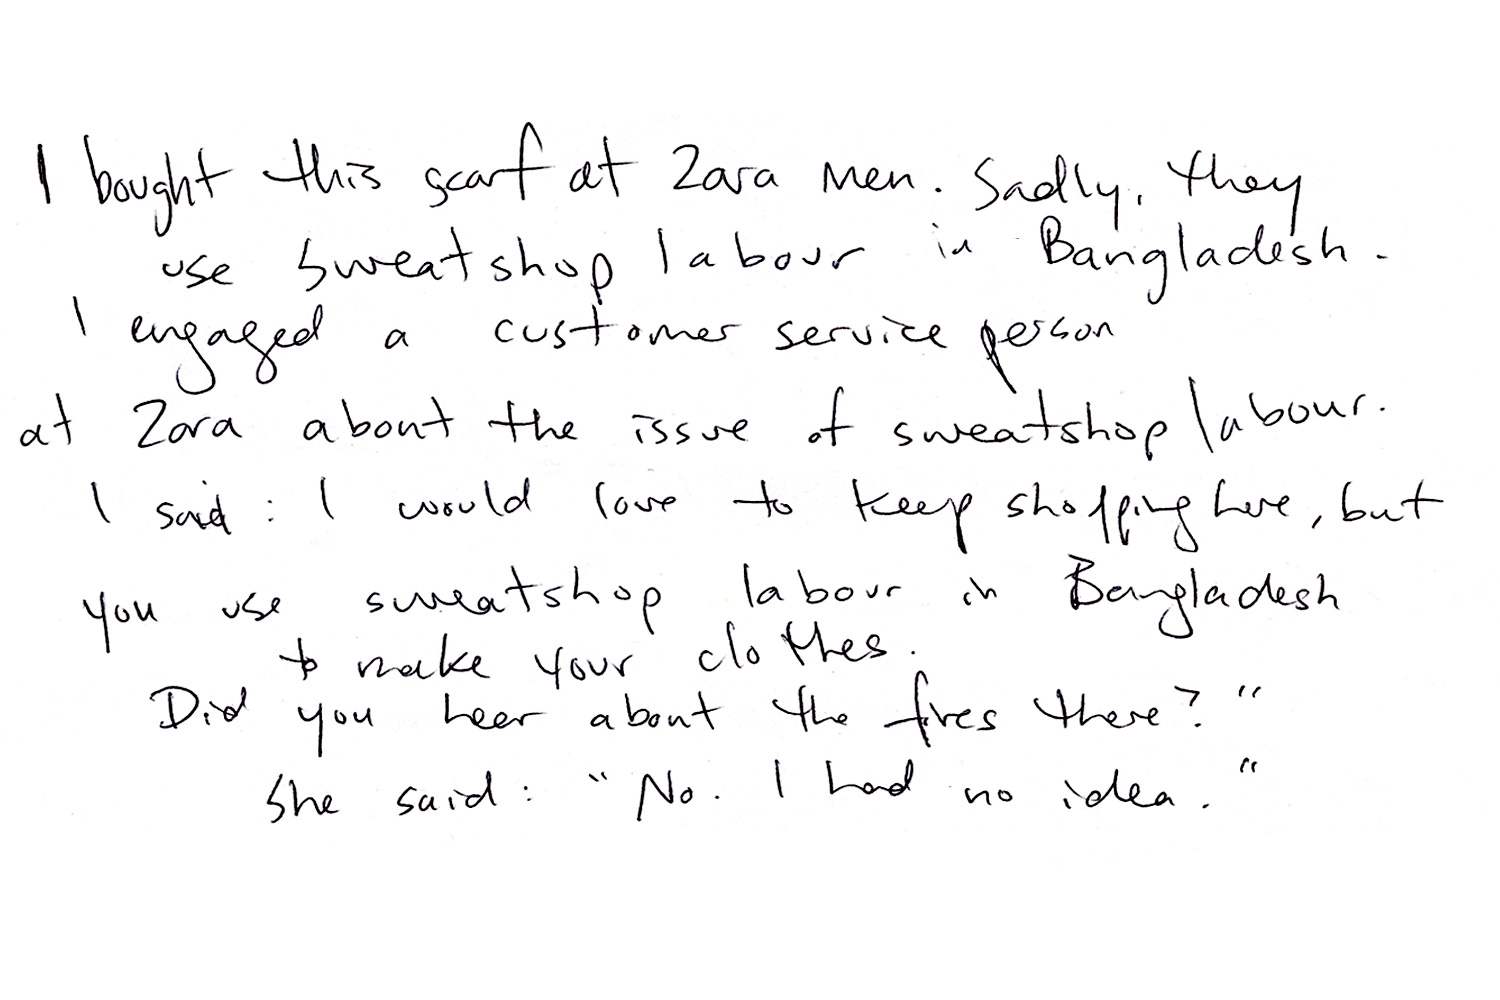 I bought this scarf at Zara Men. Sadly, they
use sweatshop labour in Bangladesh.
I engaged a customer service person
at Zara about the issue of sweatshop labour.
I said: I would love to keep shopping here, but
you use sweatshop labour in Bangladesh
to make your clothes.
Did you hear about the fires there?"
She said: "No. I had no idea."